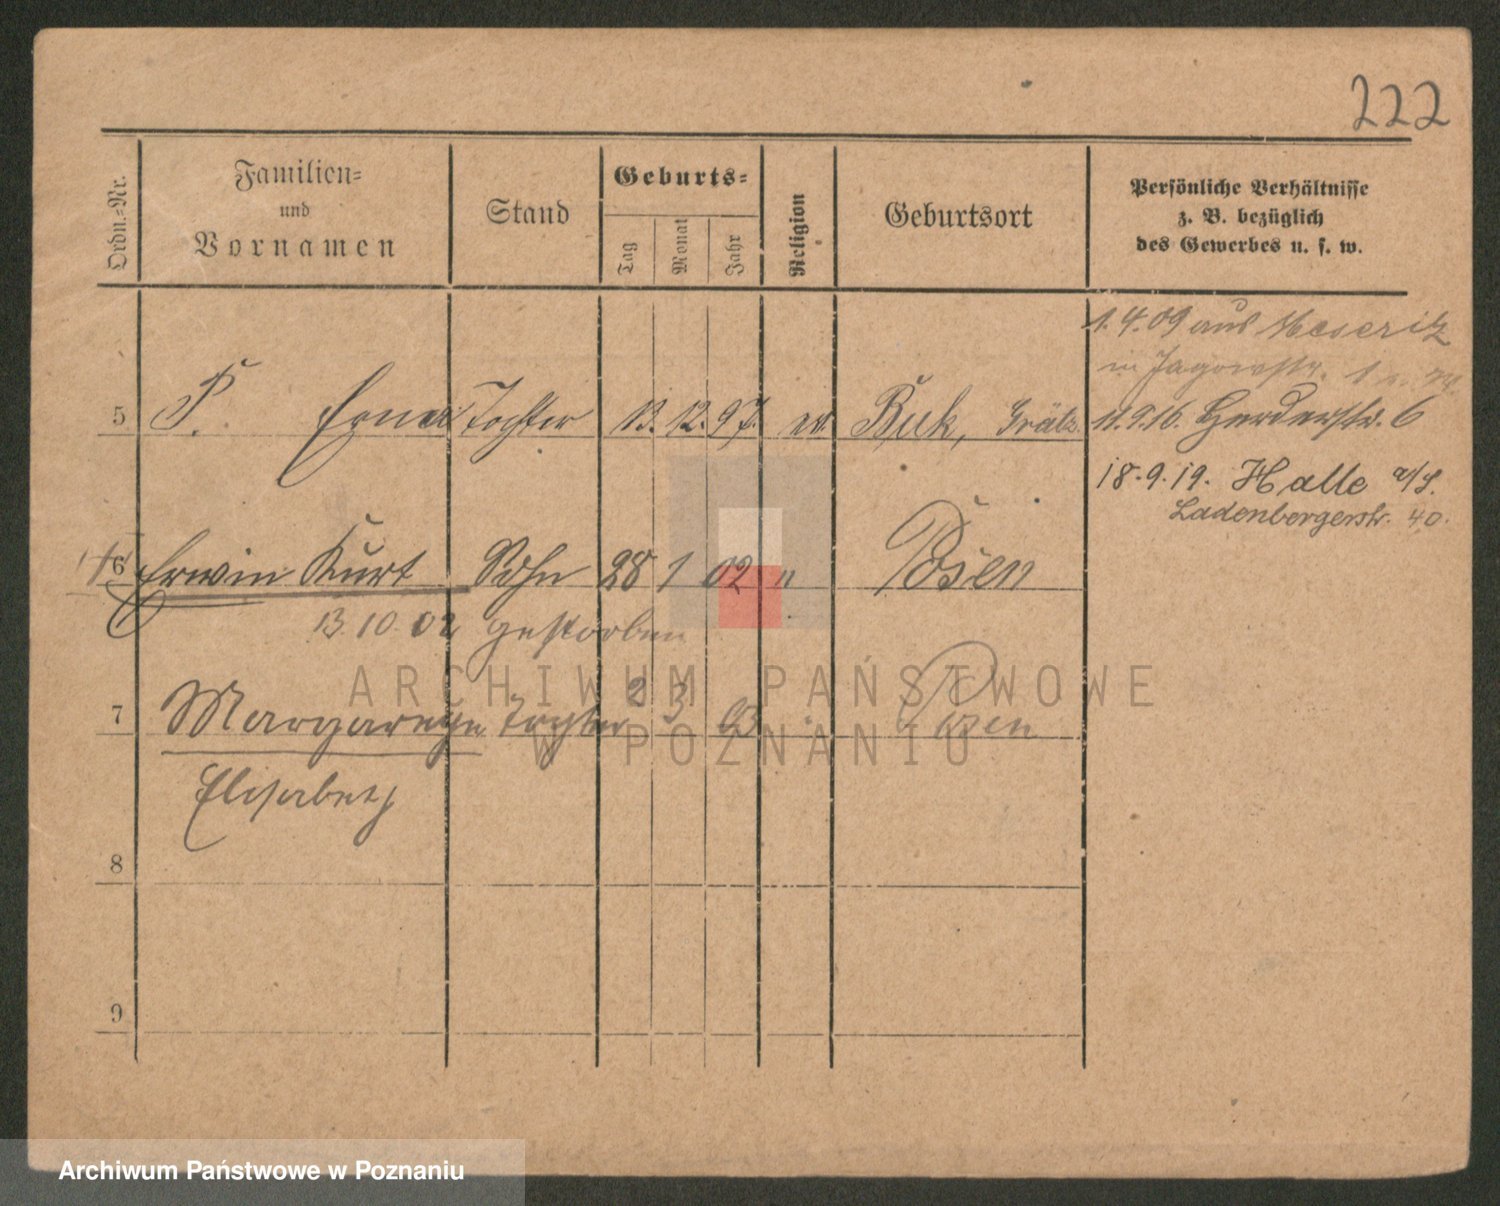 222
Ordn.-Nr.
Familien-
und
Vornamen
Stand
Geburts-
Tag
Monat
Jahr
Religion
Geburtsort
Persönliche Verhältnisse
z. B. bezüglich
des Gewerbes u. s. w.
1.4.09 aus Meseritz
in Jagowstr. 1
5 P. Erna Tochter 13. 12. 97. ev. Buk, Grätz
11.9.16. Herderstr. 6
18.9.19. Halle a/S.
Ladenbergerstr. 40.
6 Erwin Kurt Sohn 28 1 02 " Posen
13.10.02 gestorben
7 Margarethe Tochter 2 3 03 " Posen
Elisabeth
8
9
ARCHIWUM PAŃSTWOWE
W POZNANIU
Archiwum Państwowe w Poznaniu